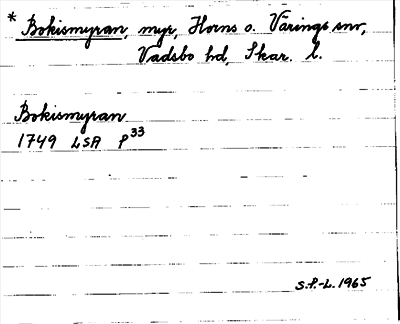 * Bokismyran, myr, Horns o. Värings snr,
Vadsbo hd, Skar. l.
Bokismyran
1749 LSA P33
S.P.-L. 1965